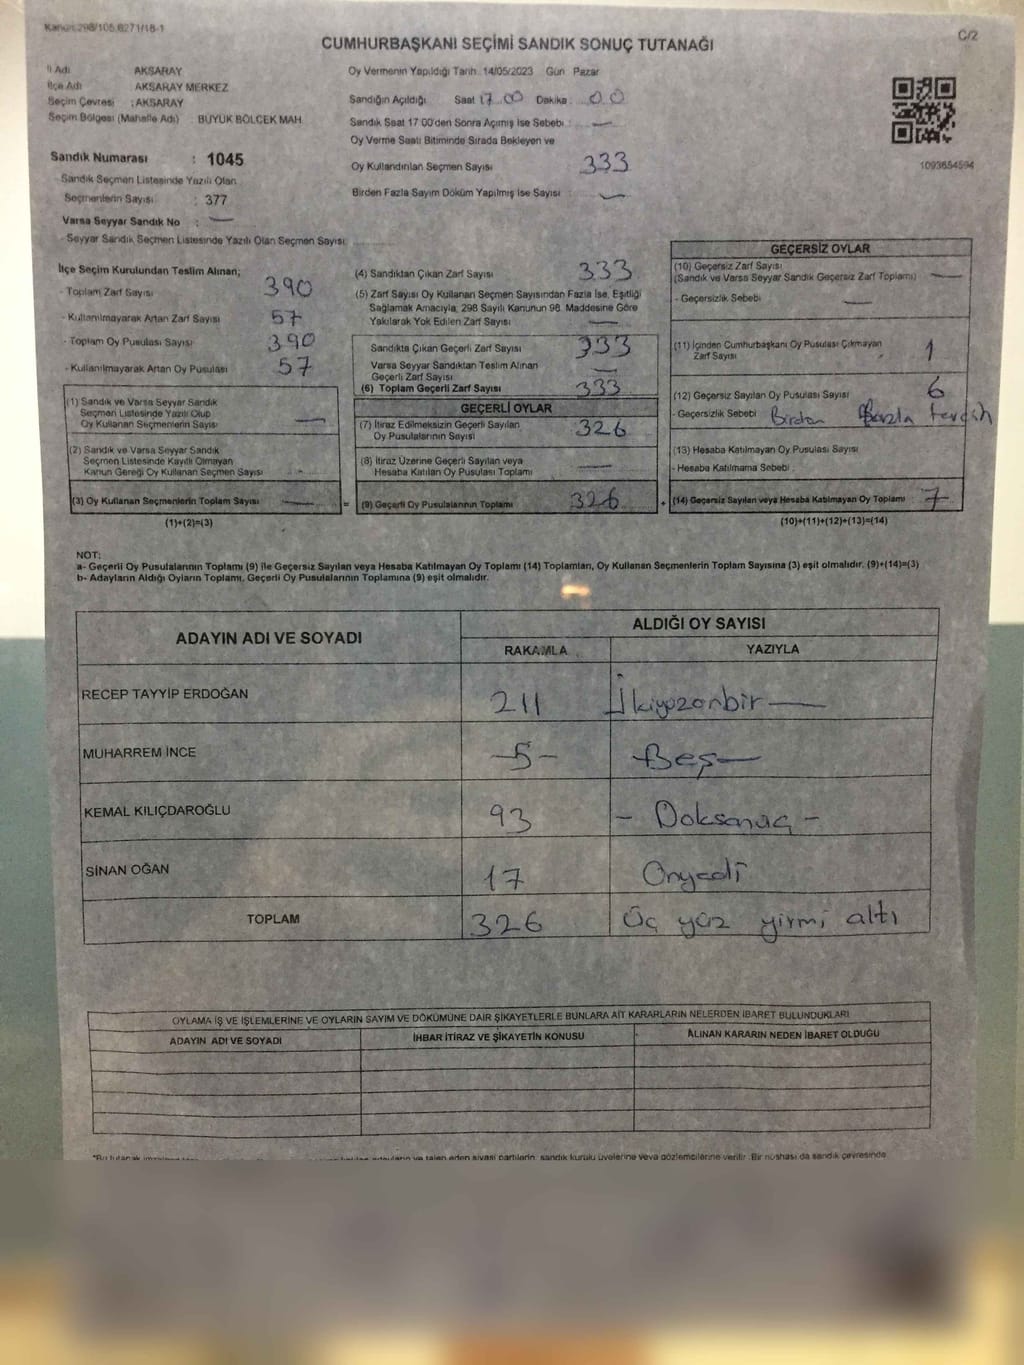 Kanun 298/105,6271/18-1
C/2
CUMHURBAŞKANI SEÇİMİ SANDIK SONUÇ TUTANAĞI
İl Adı AKSARAY
İlçe Adı AKSARAY MERKEZ
Seçim Çevresi : AKSARAY
Seçim Bölgesi (Mahalle Adı) BÜYÜK BÖLCEK MAH.
Sandık Numarası : 1045
Sandık Seçmen Listesinde Yazılı Olan
Seçmenlerin Sayısı : 377
Varsa Seyyar Sandık No : —
- Seyyar Sandık Seçmen Listesinde Yazılı Olan Seçmen Sayısı
Oy Vermenin Yapıldığı Tarih 14/05/2023 Gün Pazar
Sandığın Açıldığı Saat 17.00 Dakika : 00
Sandık Saat 17 00'den Sonra Açımış İse Sebebi : —
Oy Verme Saati Bitiminde Sırada Bekleyen ve
Oy Kullandırılan Seçmen Sayısı 333
Birden Fazla Sayım Döküm Yapılmış İse Sayısı : —
1093654594
İlçe Seçim Kurulundan Teslim Alınan;
- Toplam Zarf Sayısı 390
- Kullanılmayarak Artan Zarf Sayısı 57
- Toplam Oy Pusulası Sayısı 390
- Kullanılmayarak Artan Oy Pusulası 57
(1) Sandık ve Varsa Seyyar Sandık
Seçmen Listesinde Yazılı Olup
Oy Kullanan Seçmenlerin Sayısı —
(2) Sandık ve Varsa Seyyar Sandık
Seçmen Listesinde Kayıtlı Olmayan
Kanun Gereği Oy Kullanan Seçmen Sayısı
(3) Oy Kullanan Seçmenlerin Toplam Sayısı — =
(1)+(2)=(3)
(4) Sandıktan Çıkan Zarf Sayısı 333
(5) Zarf Sayısı Oy Kullanan Seçmen Sayısından Fazla İse, Eşitliği
Sağlamak Amacıyla, 298 Sayılı Kanunun 98. Maddesine Göre
Yakılarak Yok Edilen Zarf Sayısı —
Sandıkta Çıkan Geçerli Zarf Sayısı 333
Varsa Seyyar Sandıktan Teslim Alınan
Geçerli Zarf Sayısı —
(6) Toplam Geçerli Zarf Sayısı 333
GEÇERLİ OYLAR
(7) İtiraz Edilmeksizin Geçerli Sayılan
Oy Pusulalarının Sayısı 326
(8) İtiraz Üzerine Geçerli Sayılan veya
Hesaba Katılan Oy Pusulası Toplamı —
(9) Geçerli Oy Pusulalarının Toplamı 326 +
GEÇERSİZ OYLAR
(10) Geçersiz Zarf Sayısı
(Sandık ve Varsa Seyyar Sandık Geçersiz Zarf Toplamı) —
- Geçersizlik Sebebi —
(11) İçinden Cumhurbaşkanı Oy Pusulası Çıkmayan
Zarf Sayısı 1
(12) Geçersiz Sayılan Oy Pusulası Sayısı 6
- Geçersizlik Sebebi Birden fazla tercih
(13) Hesaba Katılmayan Oy Pusulası Sayısı
- Hesaba Katılmama Sebebi :
(14) Geçersiz Sayılan veya Hesaba Katılmayan Oy Toplamı : 7
(10)+(11)+(12)+(13)=(14)
NOT:
a- Geçerli Oy Pusulalarının Toplamı (9) ile Geçersiz Sayılan veya Hesaba Katılmayan Oy Toplamı (14) Toplamları, Oy Kullanan Seçmenlerin Toplam Sayısına (3) eşit olmalıdır. (9)+(14)=(3)
b- Adayların Aldığı Oyların Toplamı, Geçerli Oy Pusulalarının Toplamına (9) eşit olmalıdır.
ADAYIN ADI VE SOYADI ALDIĞI OY SAYISI
RAKAMLA YAZIYLA
RECEP TAYYİP ERDOĞAN 211 İkiyüzonbir —
MUHARREM İNCE -5- -Beş-
KEMAL KILIÇDAROĞLU 93 - Doksanüç -
SİNAN OĞAN 17 Onyedi
TOPLAM 326 Üç yüz yirmi altı
OYLAMA İŞ VE İŞLEMLERİNE VE OYLARIN SAYIM VE DÖKÜMÜNE DAİR ŞİKAYETLERLE BUNLARA AİT KARARLARIN NELERDEN İBARET BULUNDUKLARI
ADAYIN ADI VE SOYADI İHBAR İTİRAZ VE ŞİKAYETİN KONUSU ALINAN KARARIN NEDEN İBARET OLDUĞU
adayların ve talep eden siyasi partilerin, sandık kurulu üyelerine veya gözlemcilerine verilir. Bir nüshası da sandık çevresinde